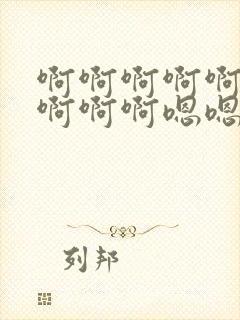 啊啊啊啊啊
啊啊啊嗯嗯
列邦